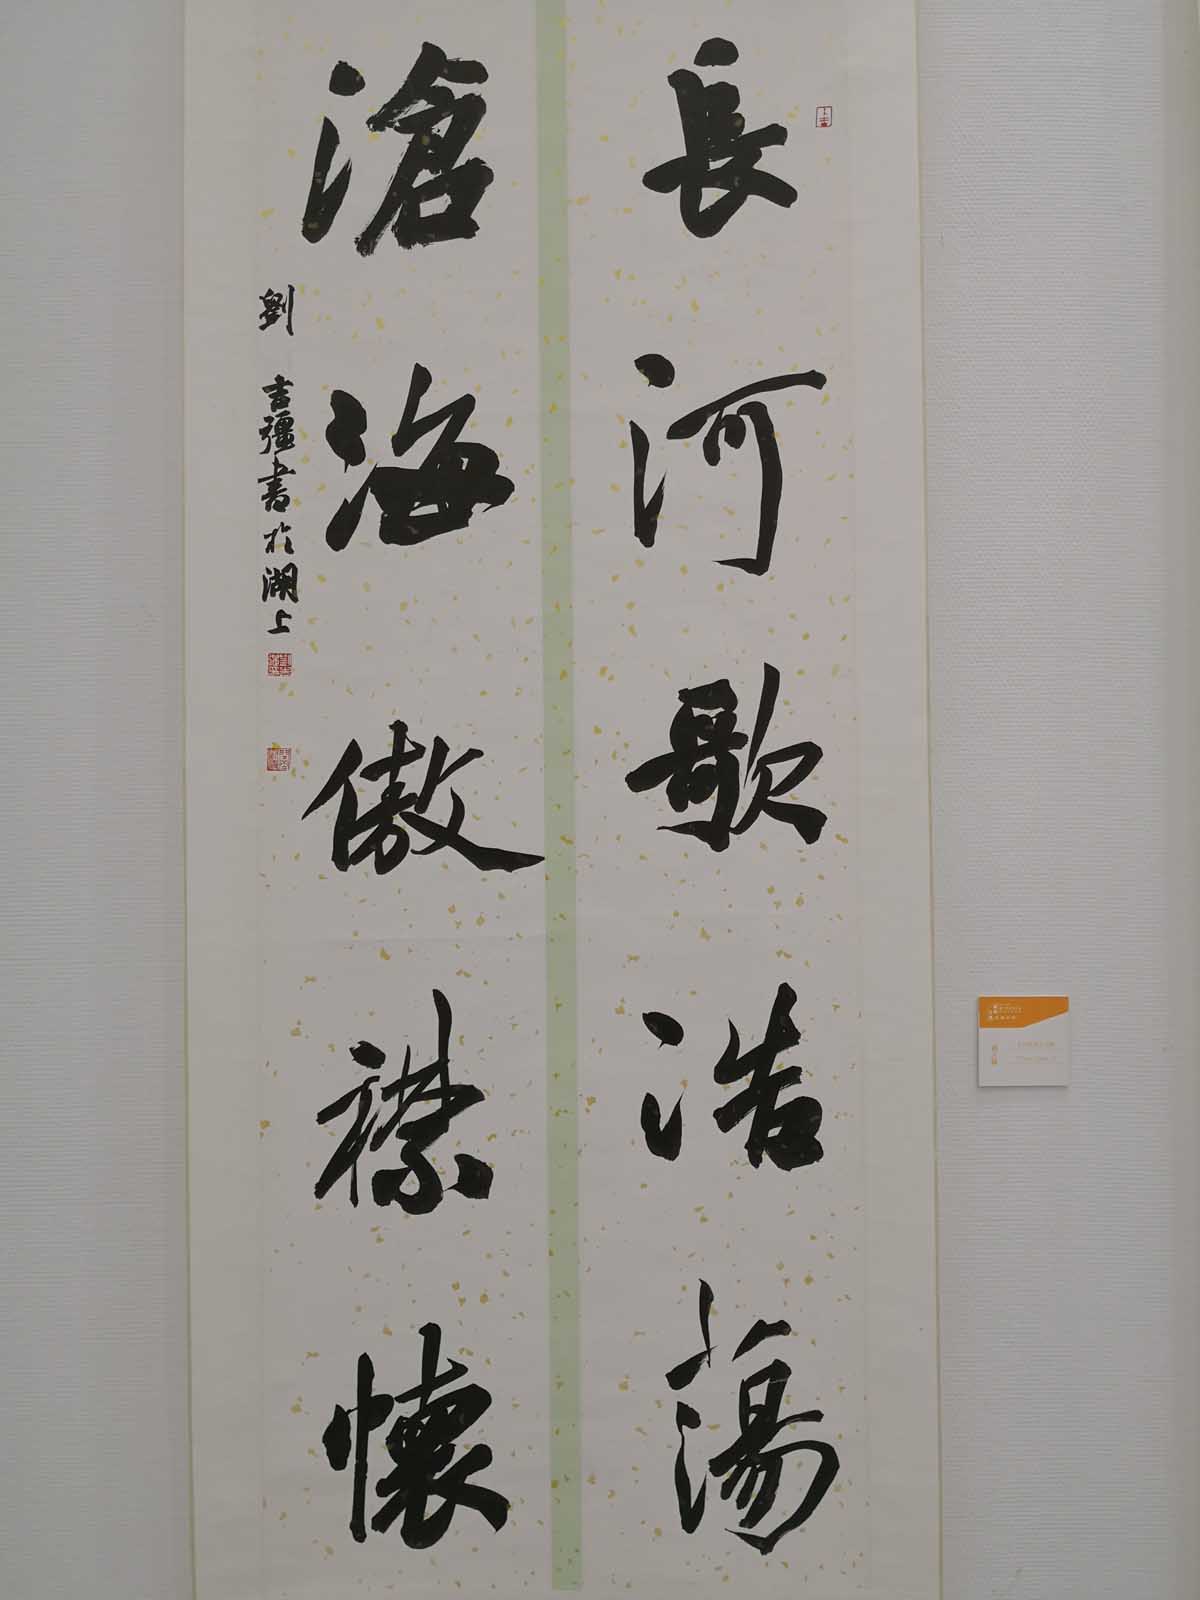 長河歌浩蕩
滄海傲襟懷
劉吉彊書於湖上